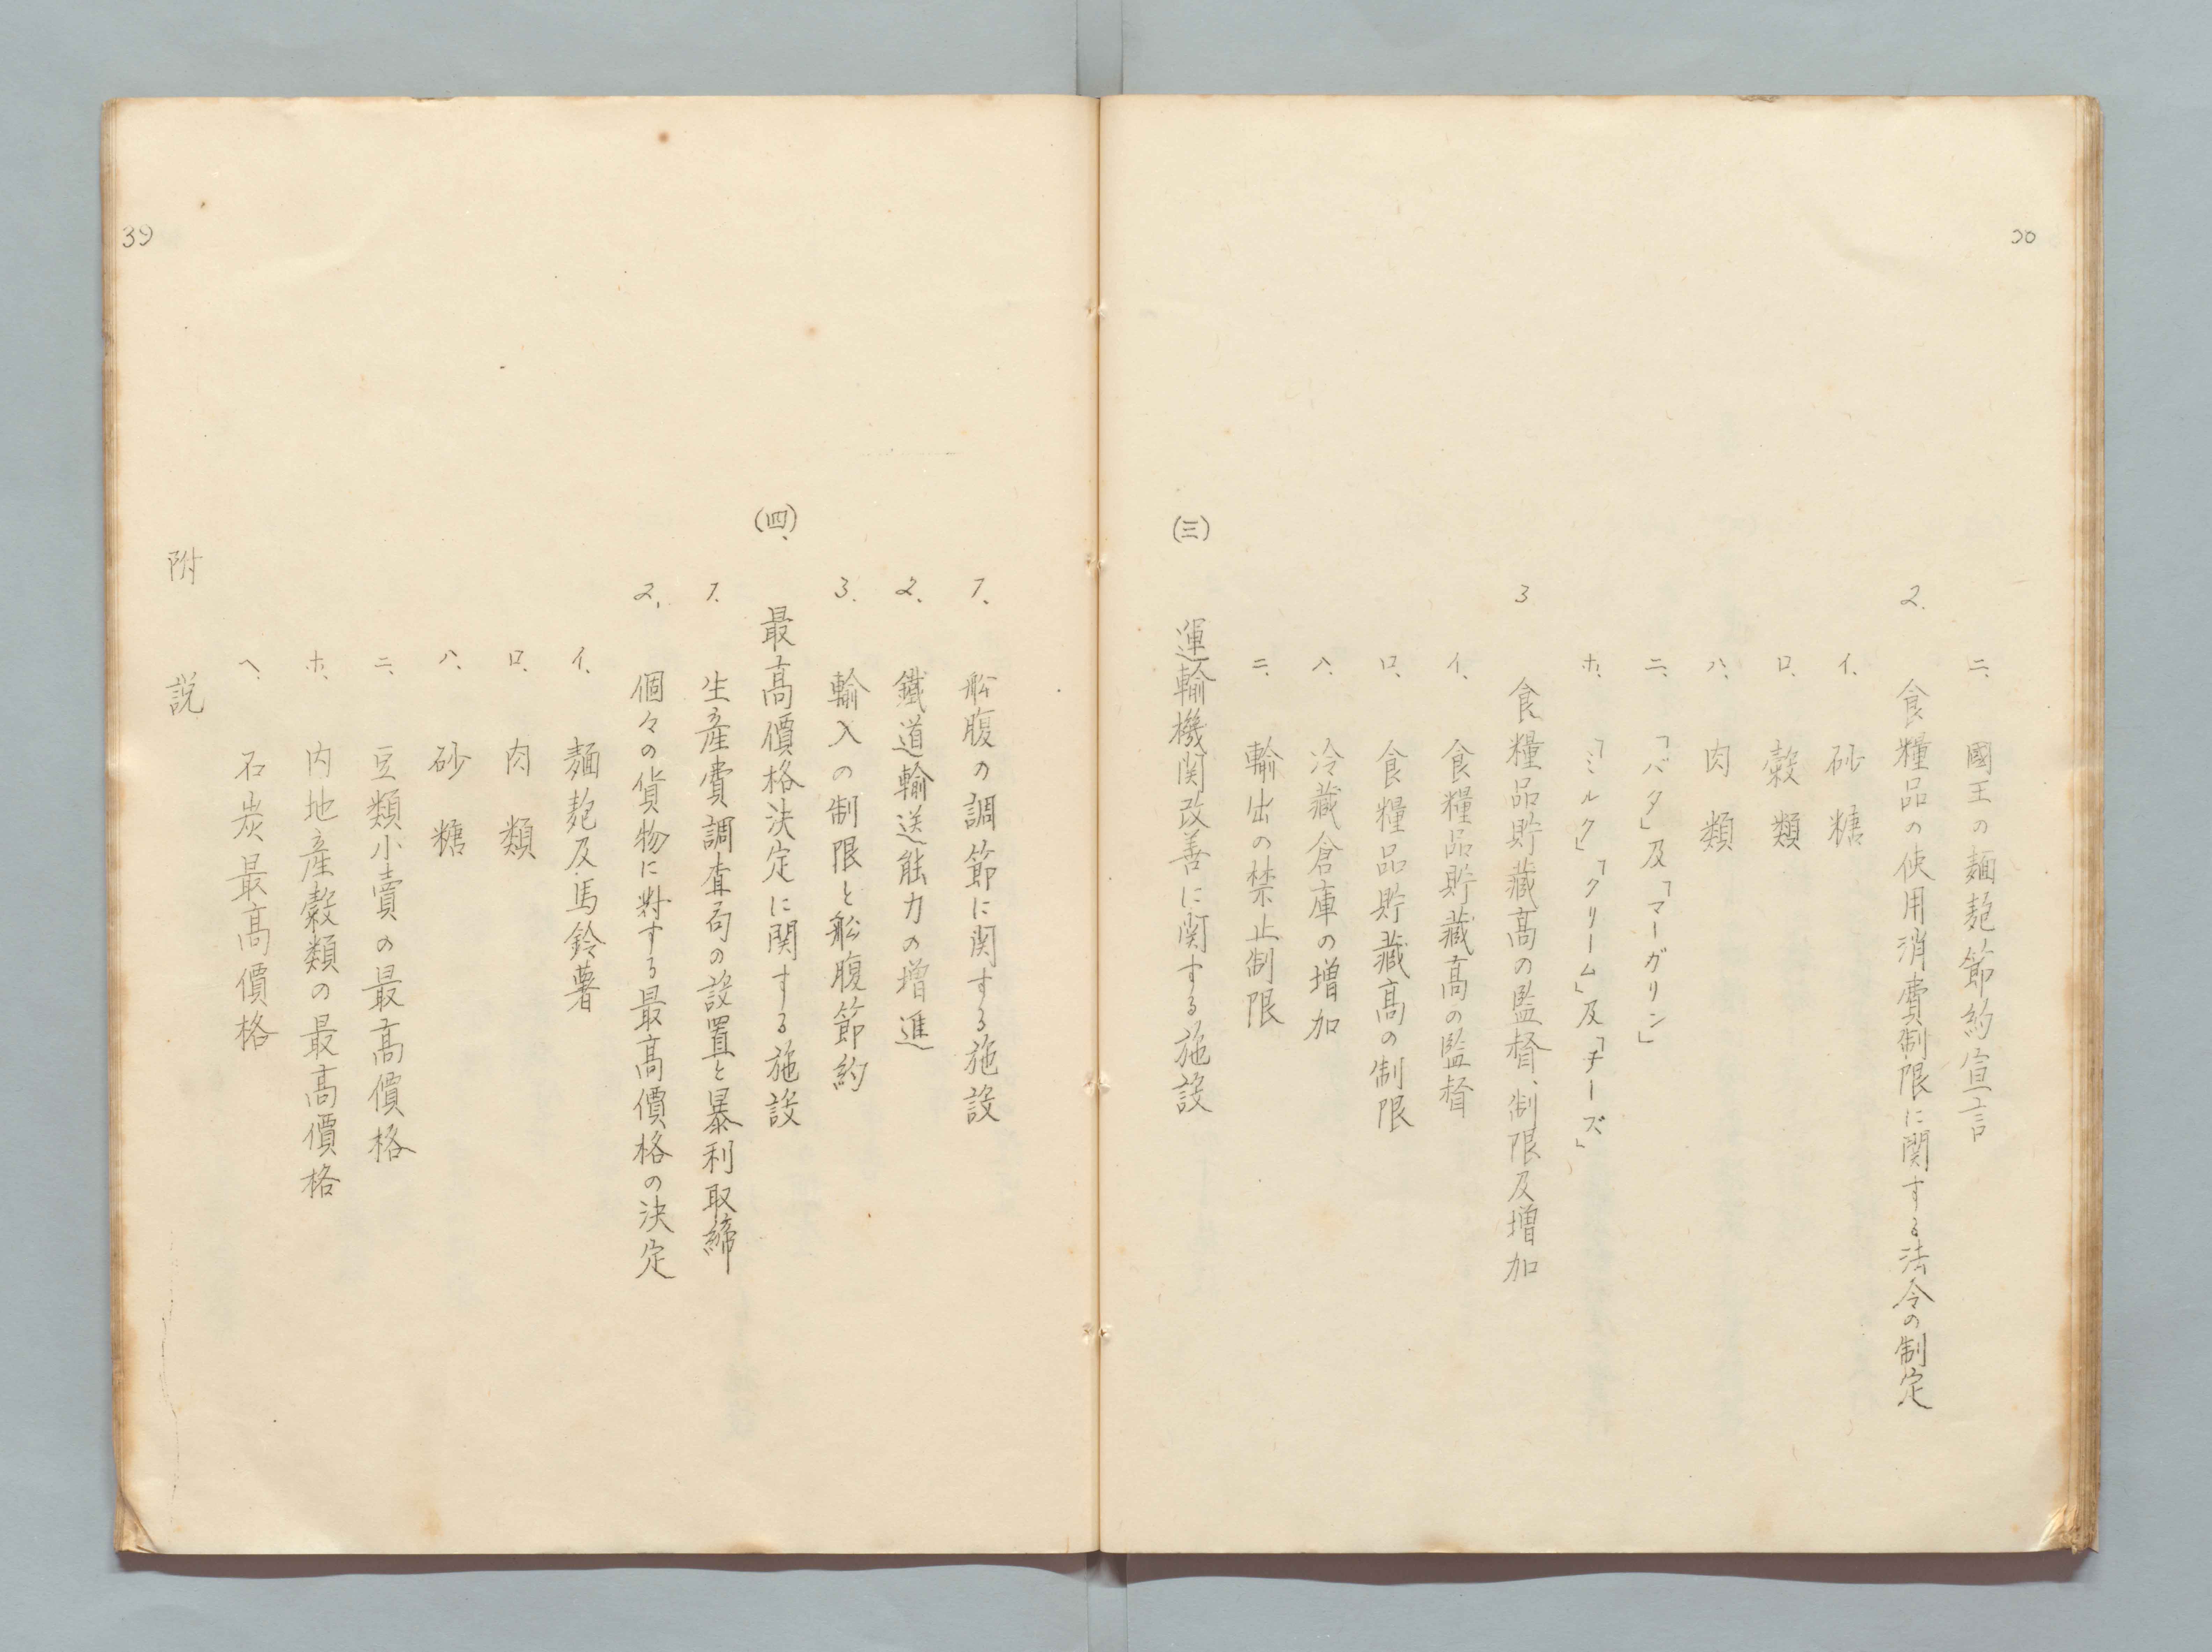 ニ、國王の麺麭節約宣言
2. 食糧品の使用消費制限に関する法令の制定
イ、砂糖
ロ、穀類
ハ、肉類
ニ、「バタ」及「マーガリン」
ホ、「ミルク」「クリーム」及「チーズ」
3 食糧品貯藏高の監督、制限及増加
イ、食糧品貯藏高の監督
ロ、食糧品貯藏高の制限
ハ、冷藏倉庫の増加
ニ、輸出の禁止制限
(三) 運輸機関改善に関する施設
1、船腹の調節に関する施設
2、鐵道輸送能力の増進
3、輸入の制限と船腹節約
(四)、最高價格決定に関する施設
1、生産費調査局の設置と暴利取締
2、個々の貨物に對する最高價格の決定
イ、麺麭及馬鈴薯
ロ、肉類
ハ、砂糖
ニ、豆類小賣の最高價格
ホ、内地産穀類の最高價格
ヘ、石炭最高價格
附説
39